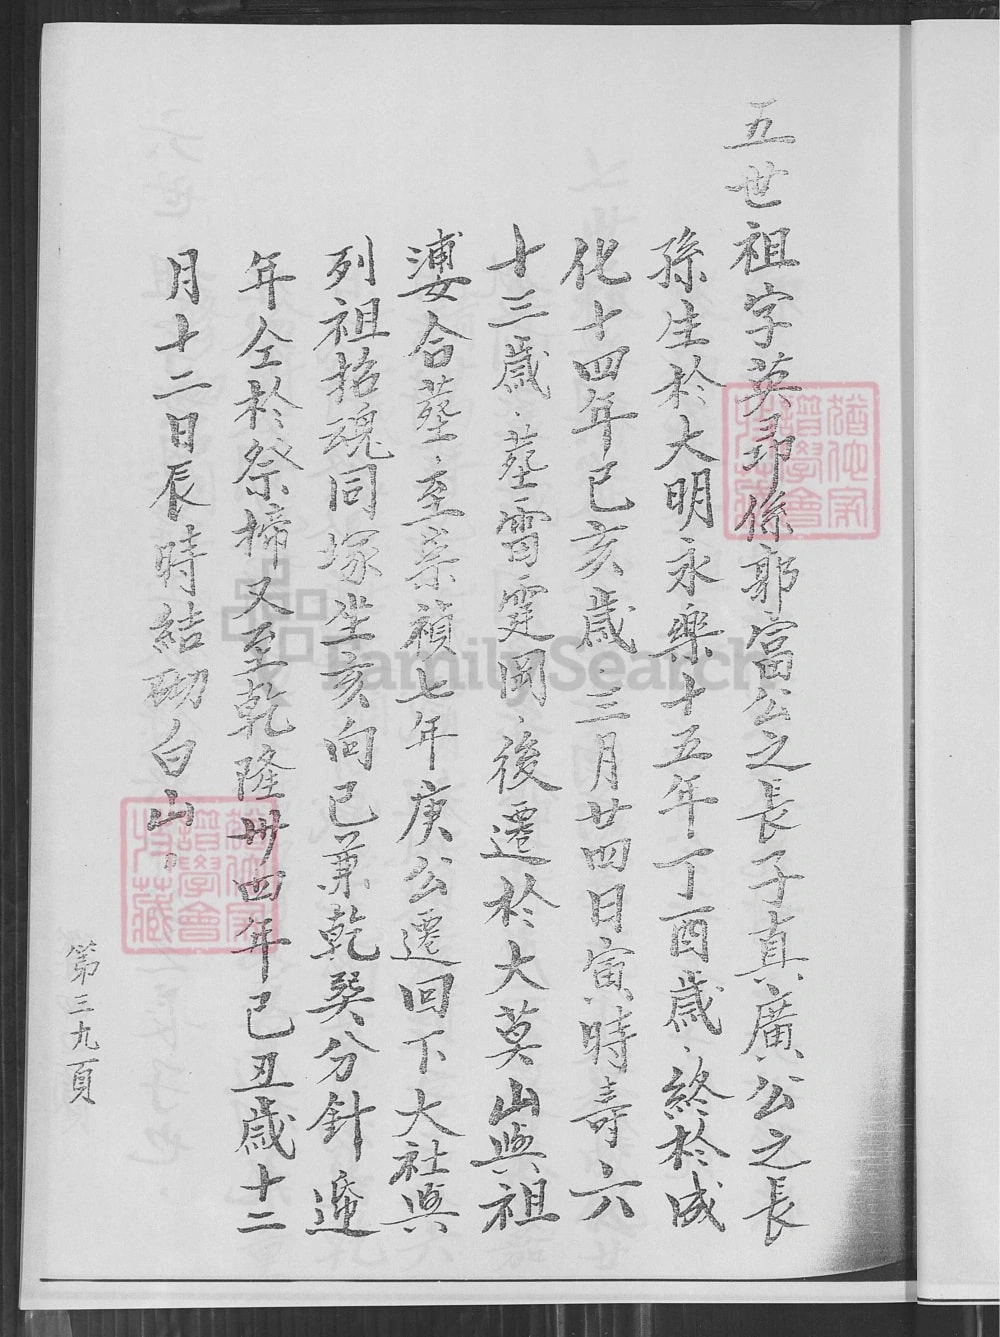 五世祖字英昴係郭富公之長子真廣公之長
孫生於大明永樂十五年丁酉歲終於成
化十四年已亥歲三月廿四日寅時壽六
十三歲葬霄霆岡後遷於大莫山與祖
婆合葬至崇禎七年庚公遷回下大社與
列祖招魂同塚坐亥向已兼乾巽分針遞
年仝於祭掃又至乾隆卅四年己丑歲十二
月十二日辰時結砌白山
第三九頁
譜學會
收藏
譜學會
收藏
FamilySearch